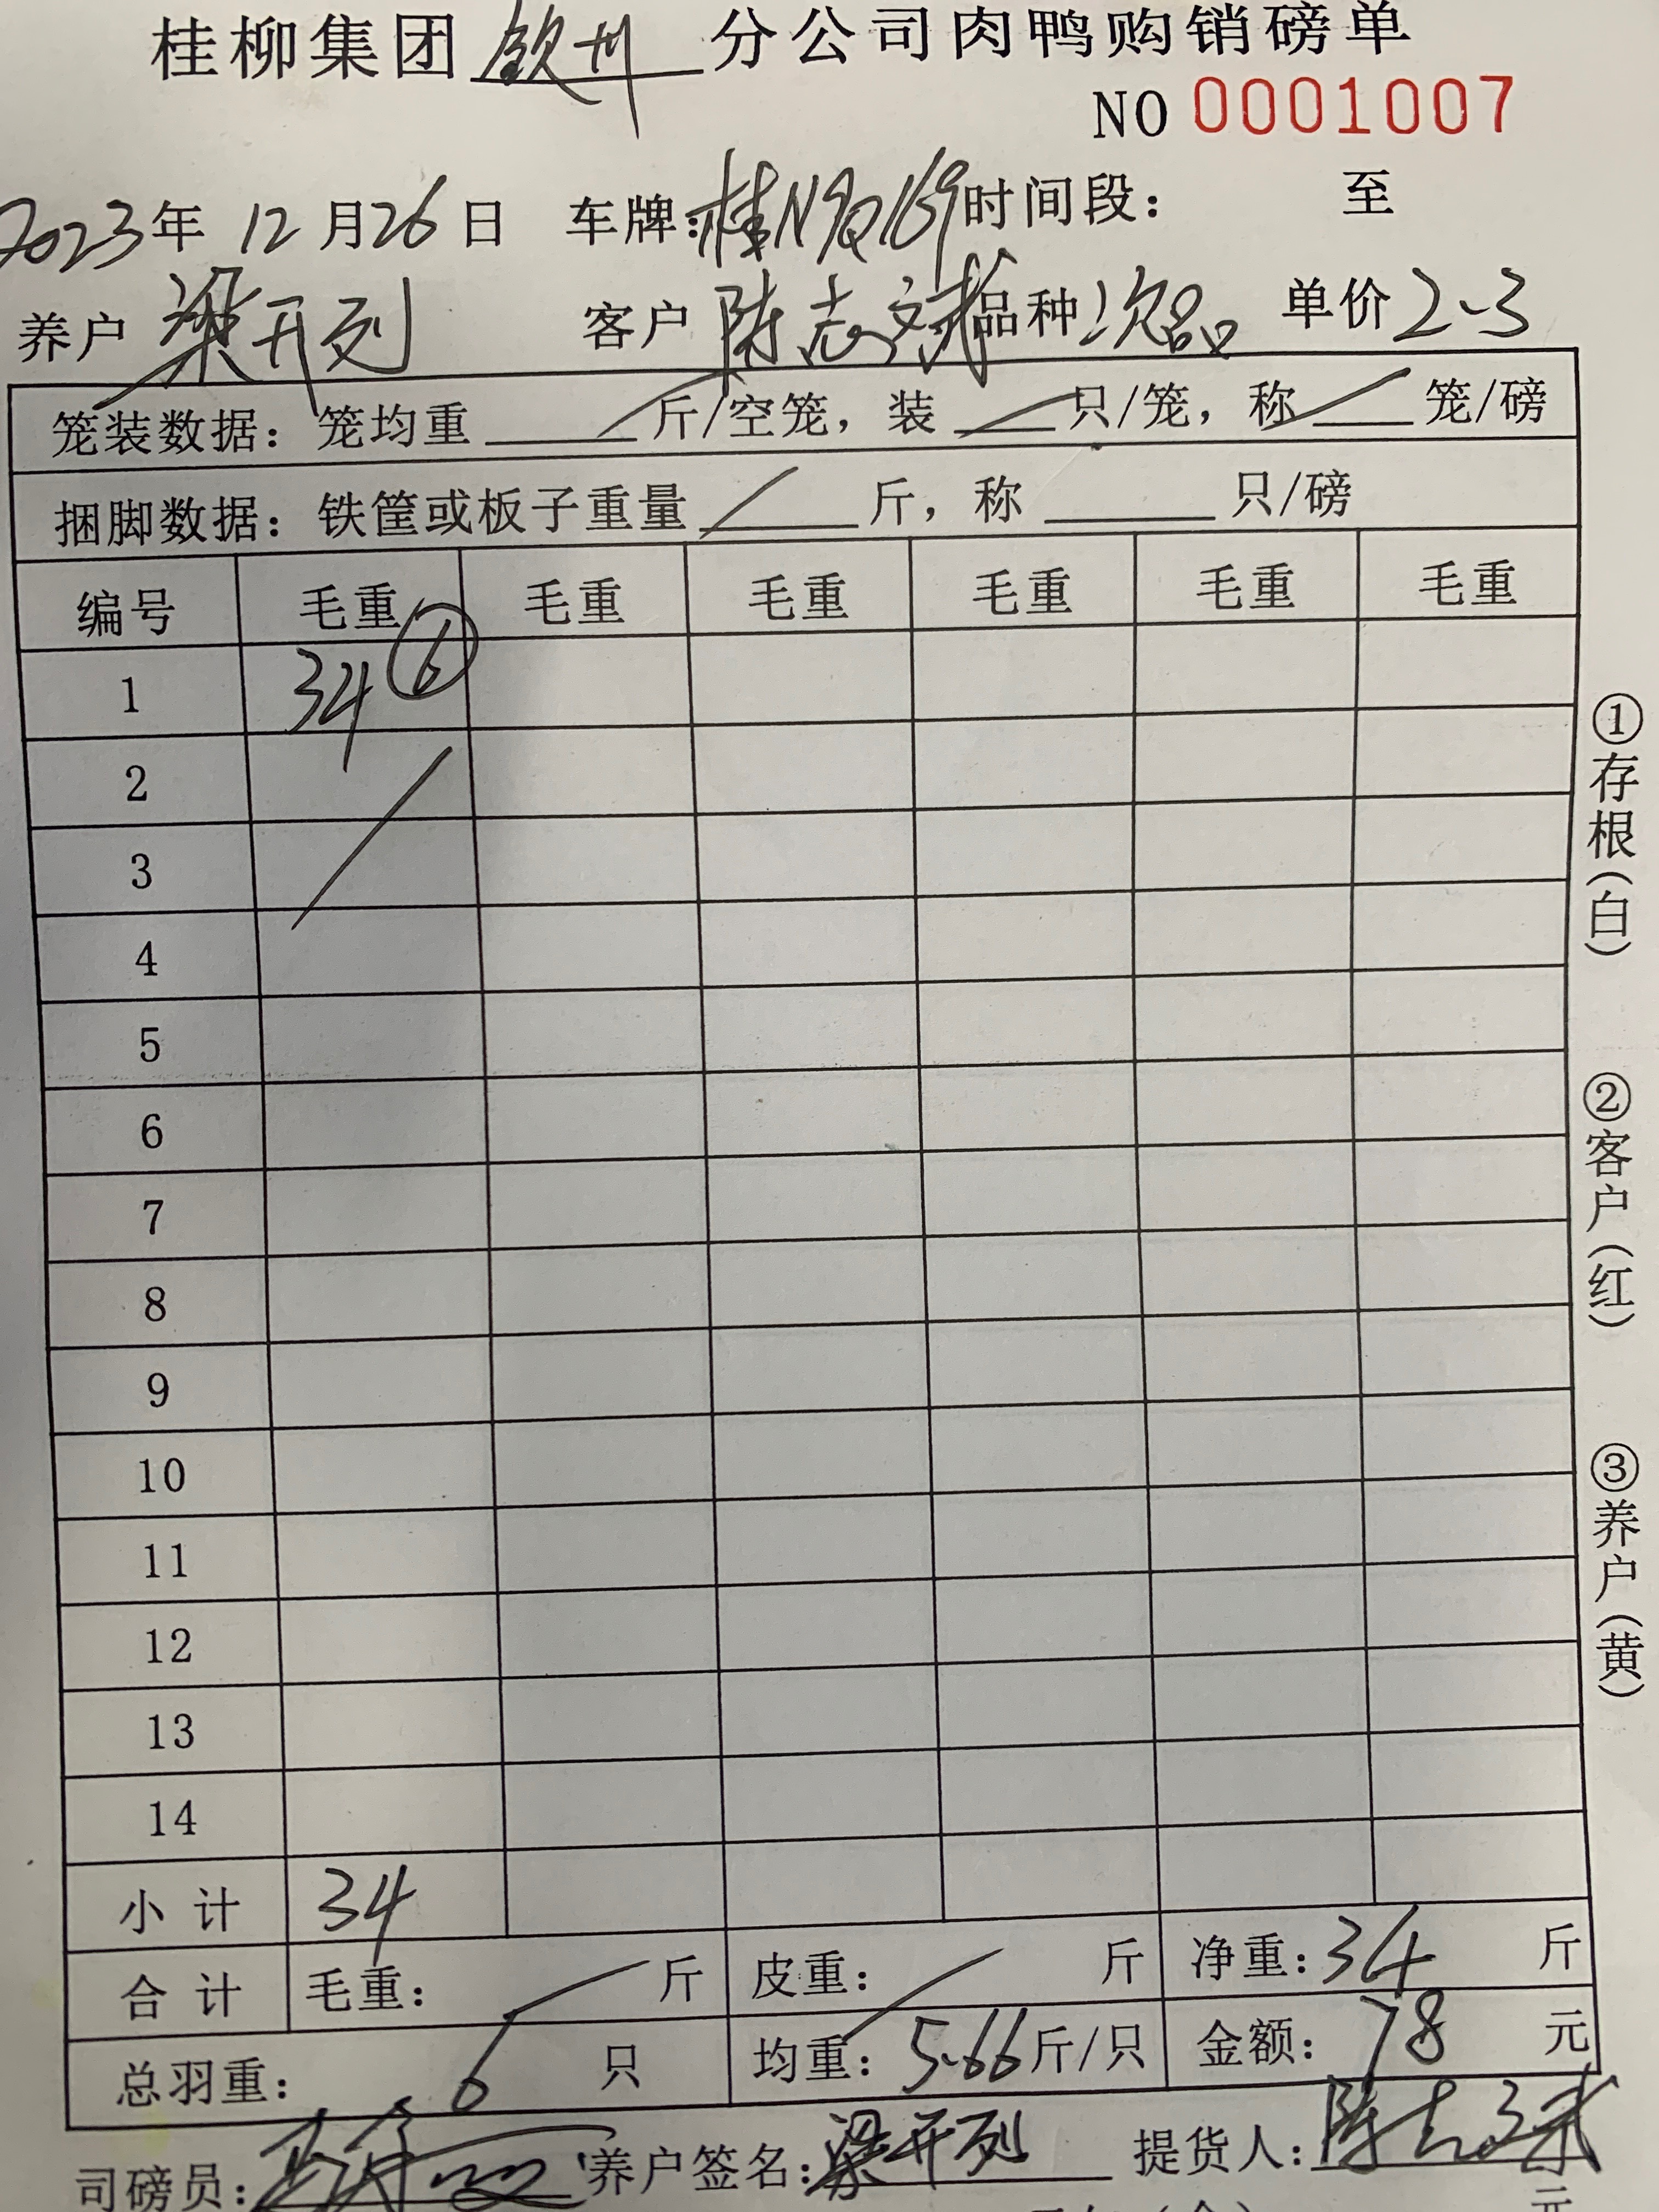 桂柳集团 钦州 分公司肉鸭购销磅单
NO 0001007
2023年 12月26日 车牌:桂N9Q169 时间段: 至
养户 梁开列 客户 陈志斌 品种 次品 单价 2.3
笼装数据: 笼均重 斤/空笼, 装 只/笼, 称 笼/磅
捆脚数据: 铁筐或板子重量 斤, 称 只/磅
编号 毛重 毛重 毛重 毛重 毛重 毛重
1 34 ⑥
2
3
4
5
6
7
8
9
10
11
12
13
14
小计 34
合计 毛重: 斤 皮重: 斤 净重: 34 斤
总羽重: 6 只 均重: 5.66 斤/只 金额: 78 元
司磅员: 养户签名: 梁开列 提货人: 陈志斌
元
①存根(白)
②客户(红)
③养户(黄)